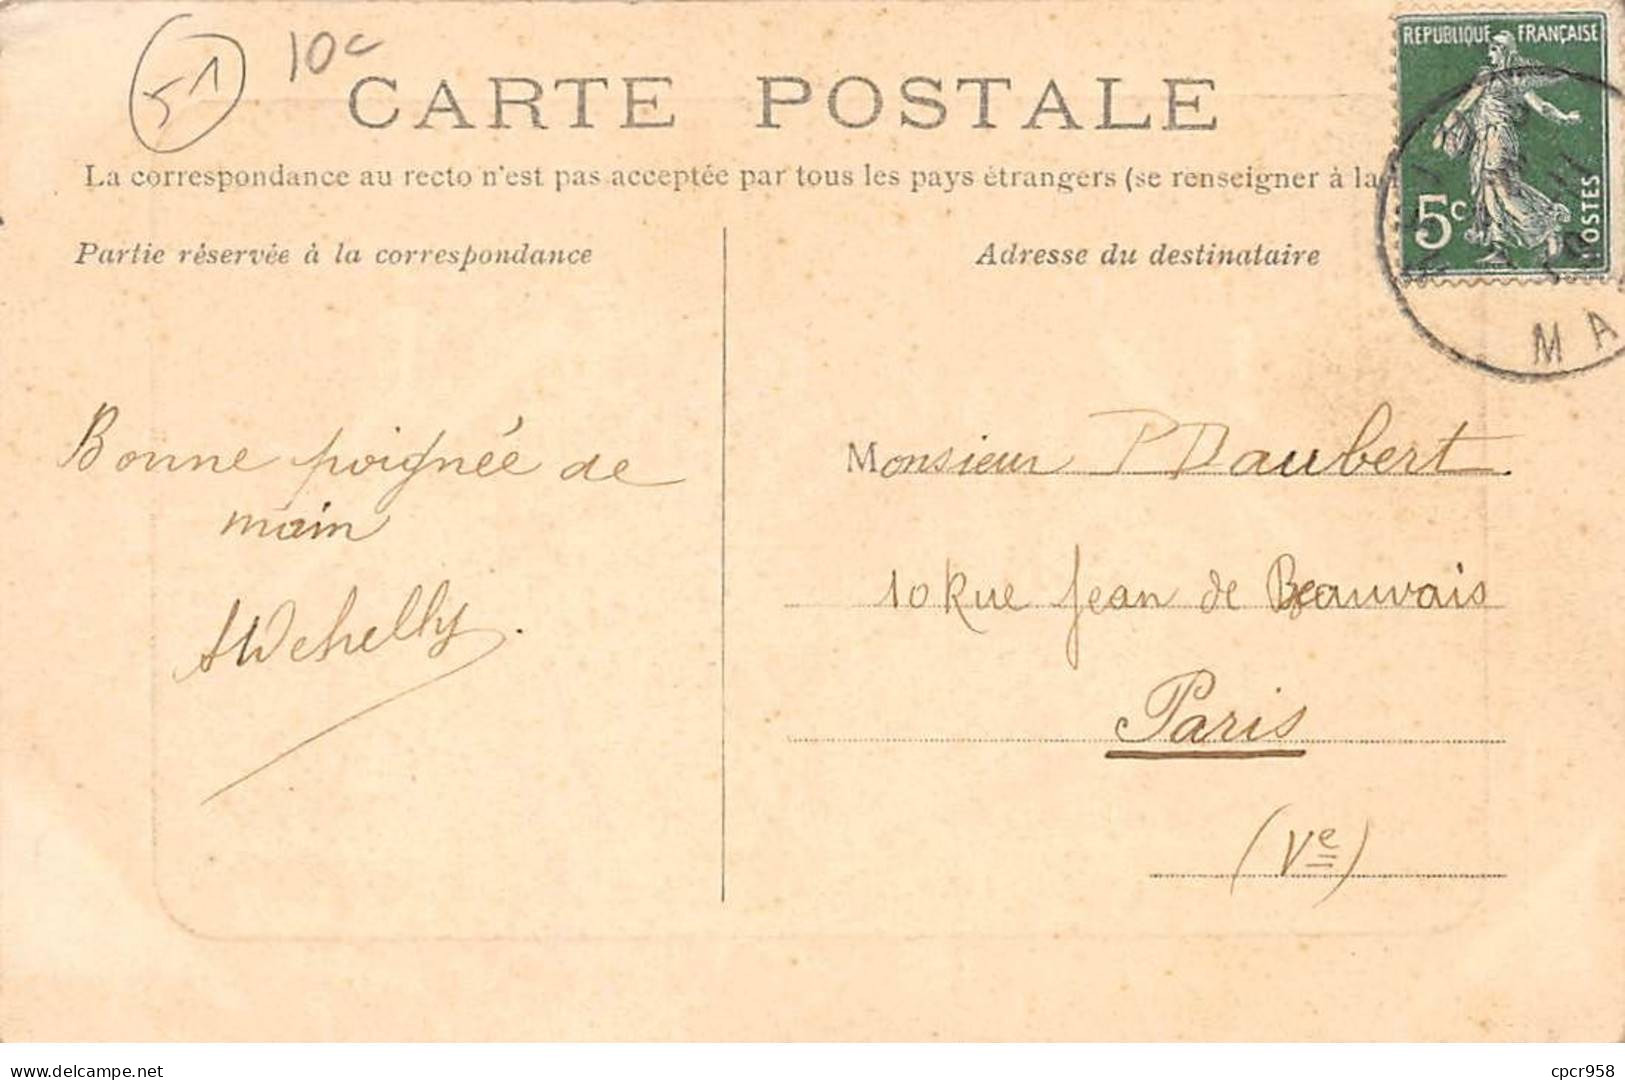 51
10c
CARTE POSTALE
RÉPUBLIQUE FRANÇAISE
5c
POSTES
La correspondance au recto n'est pas acceptée par tous les pays étrangers (se renseigner à la
Partie réservée à la correspondance
Adresse du destinataire
MA
Bonne poignée de
main
Monsieur P Daubert.
10 Rue Jean de Beauvais
Paris
(Ve)
delcampe.net
cpcr958